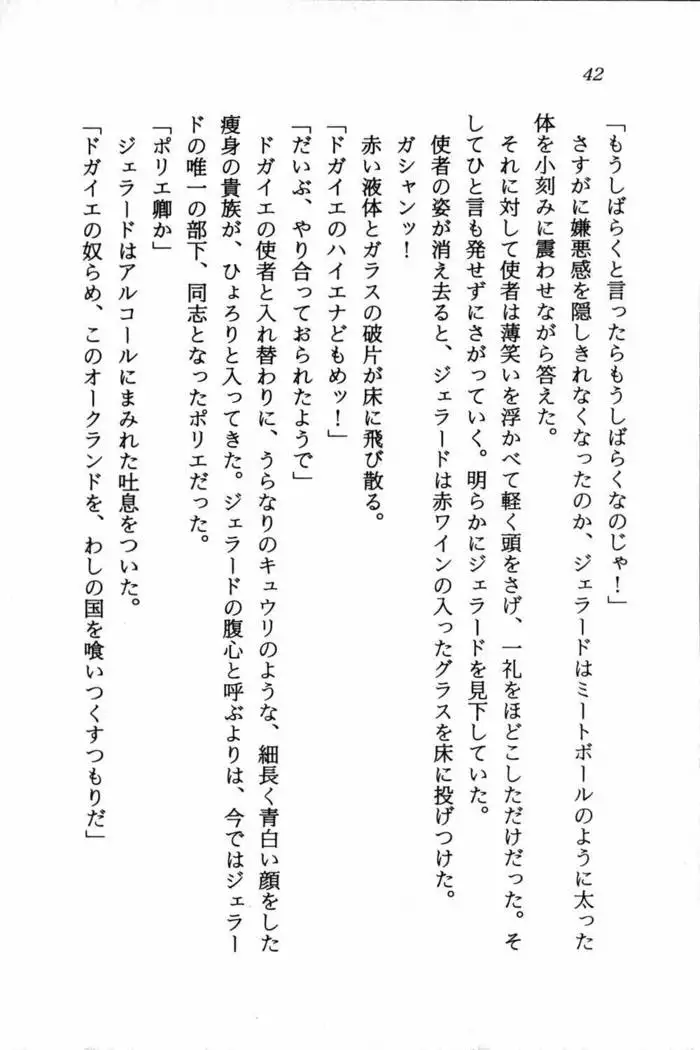 42
「もうしばらくと言ったらもうしばらくなのじゃ！」
さすがに嫌悪感を隠しきれなくなったのか、ジェラードはミートボールのように太った
体を小刻みに震わせながら答えた。
それに対して使者は薄笑いを浮かべて軽く頭をさげ、一礼をほどこしただけだった。そ
してひと言も発せずにさがっていく。明らかにジェラードを見下していた。
使者の姿が消え去ると、ジェラードは赤ワインの入ったグラスを床に投げつけた。
ガシャンッ！
赤い液体とガラスの破片が床に飛び散る。
「ドガイエのハイエナどもめッ！」
「だいぶ、やり合っておられたようで」
ドガイエの使者と入れ替わりに、うらなりのキュウリのような、細長く青白い顔をした
痩身の貴族が、ひょろりと入ってきた。ジェラードの腹心と呼ぶよりは、今ではジェラー
ドの唯一の部下、同志となったポリエだった。
「ポリエ卿か」
ジェラードはアルコールにまみれた吐息をついた。
「ドガイエの奴らめ、このオークランドを、わしの国を喰いつくすつもりだ」